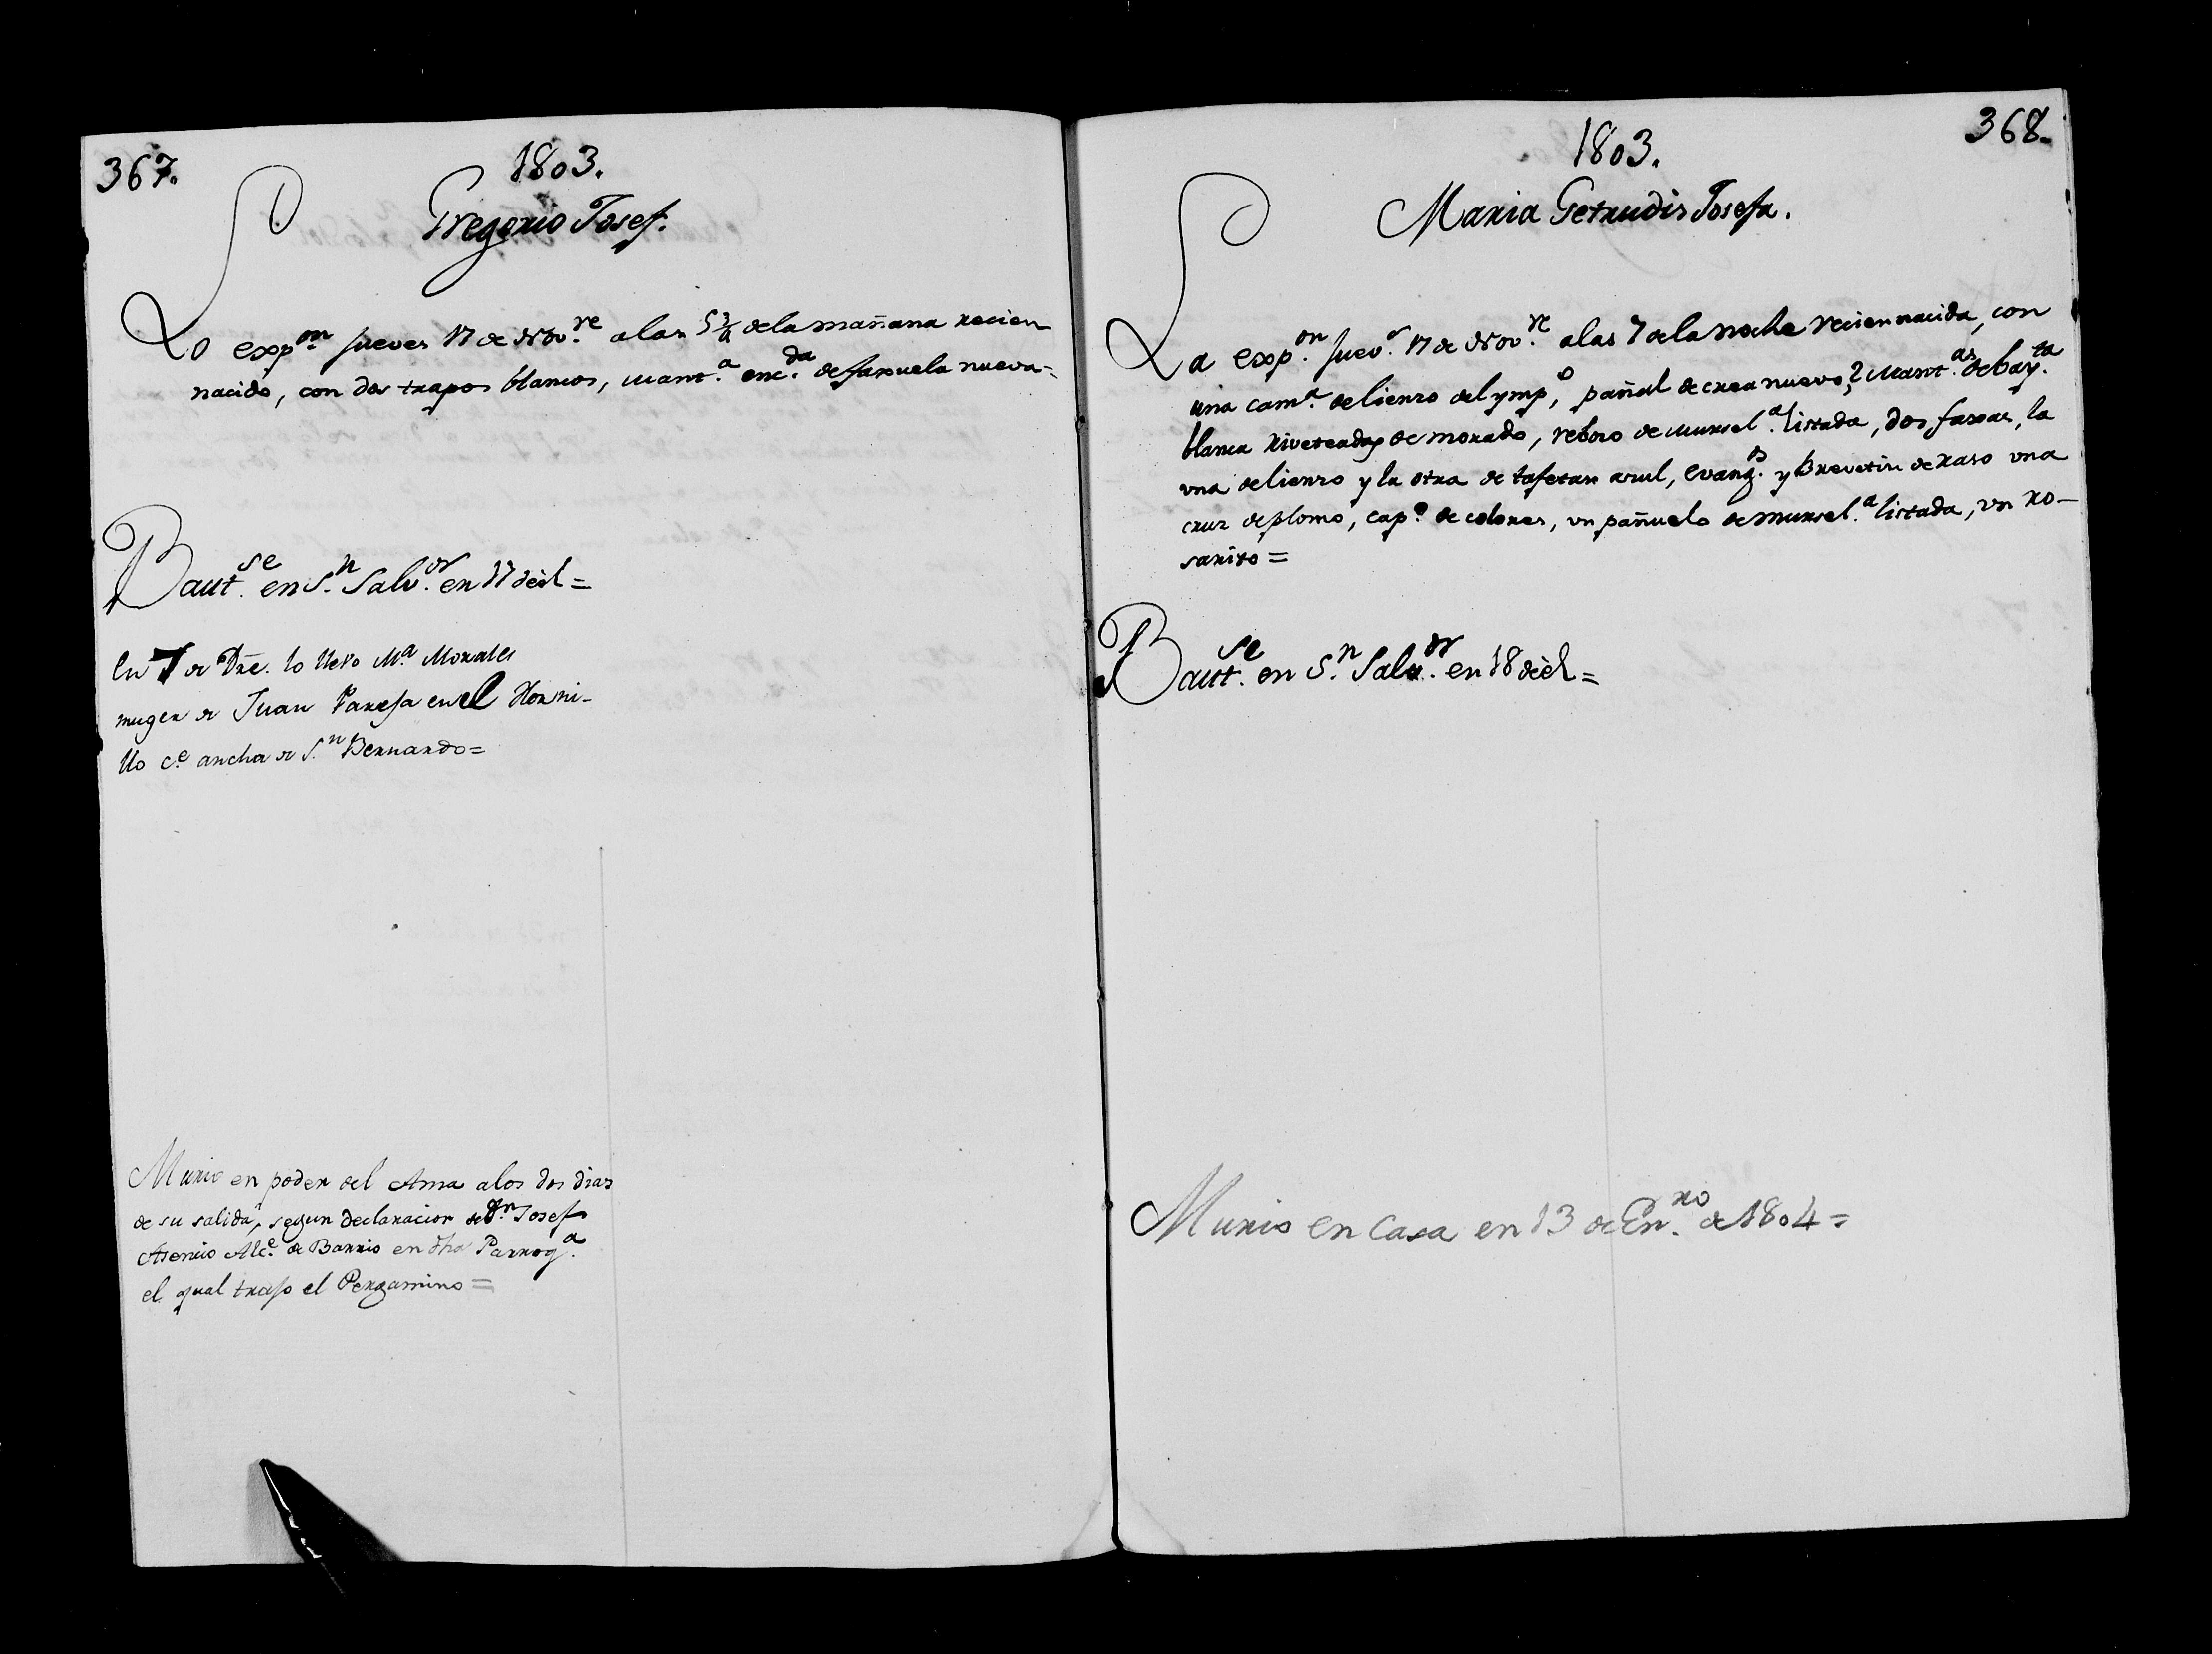 367.
1803.
Gregorio Josef.
Lo exp.on jueves 17 de Nov.re a las 5 3/4 de la mañana recien
nacido, con dos trapos blancos, mant.a enc.da de faxuela nueva=
Baut.se en S.n Salv.or en 17 dèl=
En 7 de Dre. lo llevo M.a Morales
muger de Juan Pareja en el Horni-
llo c.e ancha de S.n Bernardo=
Murio en poder del Ama a los dos dias
de su salida, segun declaracion de D.n Josef
Asencio Alc.e de Barrio en dha Parroq.a
el qual trajo el Pergamino=
368.
1803.
Maria Getrudis Josefa.
La exp.on juev.s 17 de Nov.re a las 7 de la noche recien nacida, con
una cam.a de lienzo del ymp.o, pañal de crea nuevo, 2 mant.as de bay.ta
blanca riveteadas de morado, reboso de mursel.a listada, dos faxas, la
una de lienzo y la otra de tafetan azul, evang.s y Brevetin de raso una
cruz de plomo, cap.o de colores, un pañuelo de mursel.a listada, un ro-
sarito=
Baut.se en S.n Salv.or en 18 dèl=
Murio en Casa en 13 de En.ro de 1804=